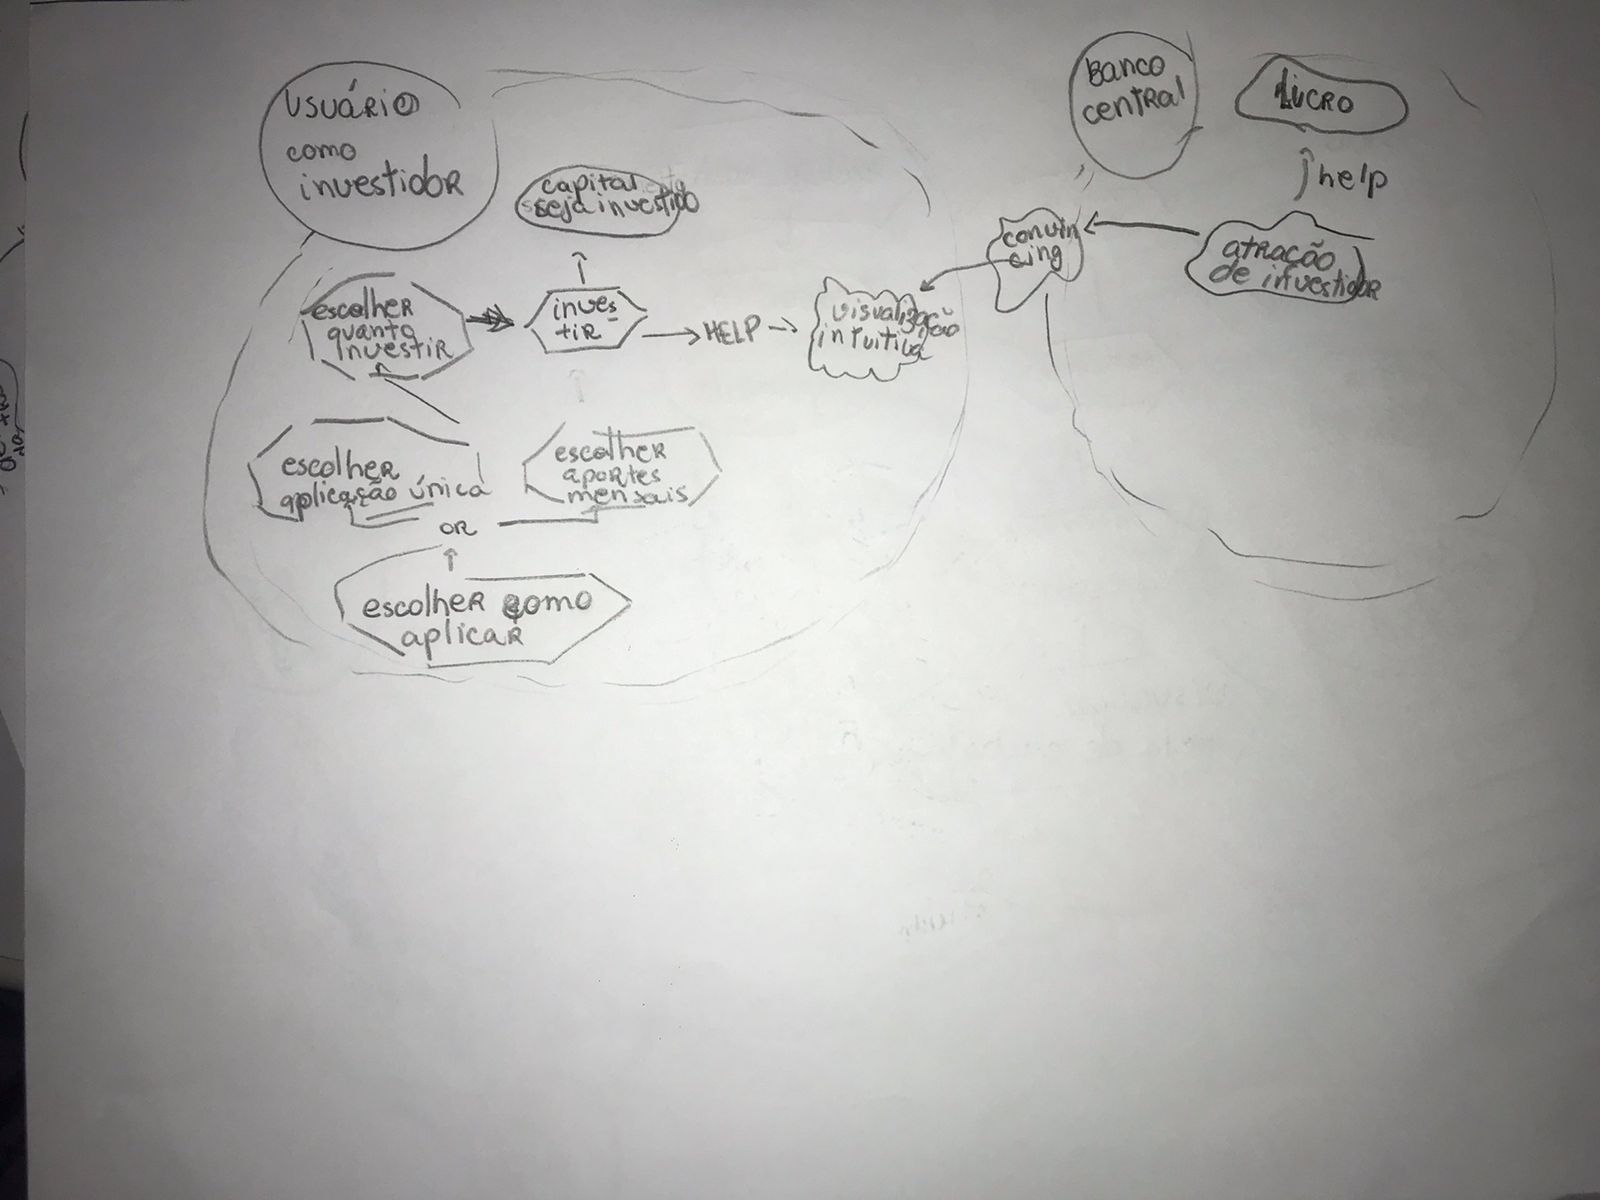 usuário
como
investidor
capital
seja investido
escolher
quanto
investir
inves-
tir
HELP
visualização
intuitiva
escolher
aplicação única
escolher
aportes
mensais
OR
escolher como
aplicar
Banco
central
Lucro
help
convin
cing
atração
de investidor